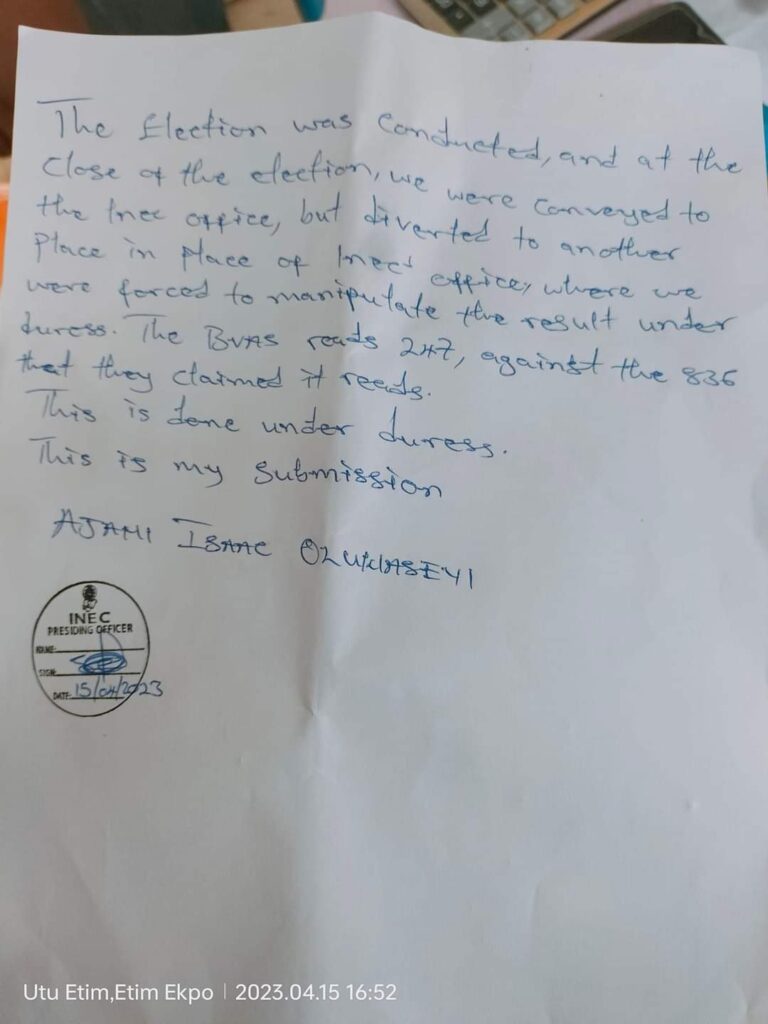 The Election was conducted, and at the
close of the election, we were conveyed to
the Inec office, but diverted to another
place in place of Inec office, where we
were forced to manipulate the result under
duress. The BVAS reads 247, against the 836
that they claimed it reads.
This is done under duress.
This is my submission
AJAMI ISAAC OLUWASEYI
INEC
PRESIDING OFFICER
NAME:
SIGN:
DATE: 15/04/2023
Utu Etim,Etim Ekpo | 2023.04.15 16:52